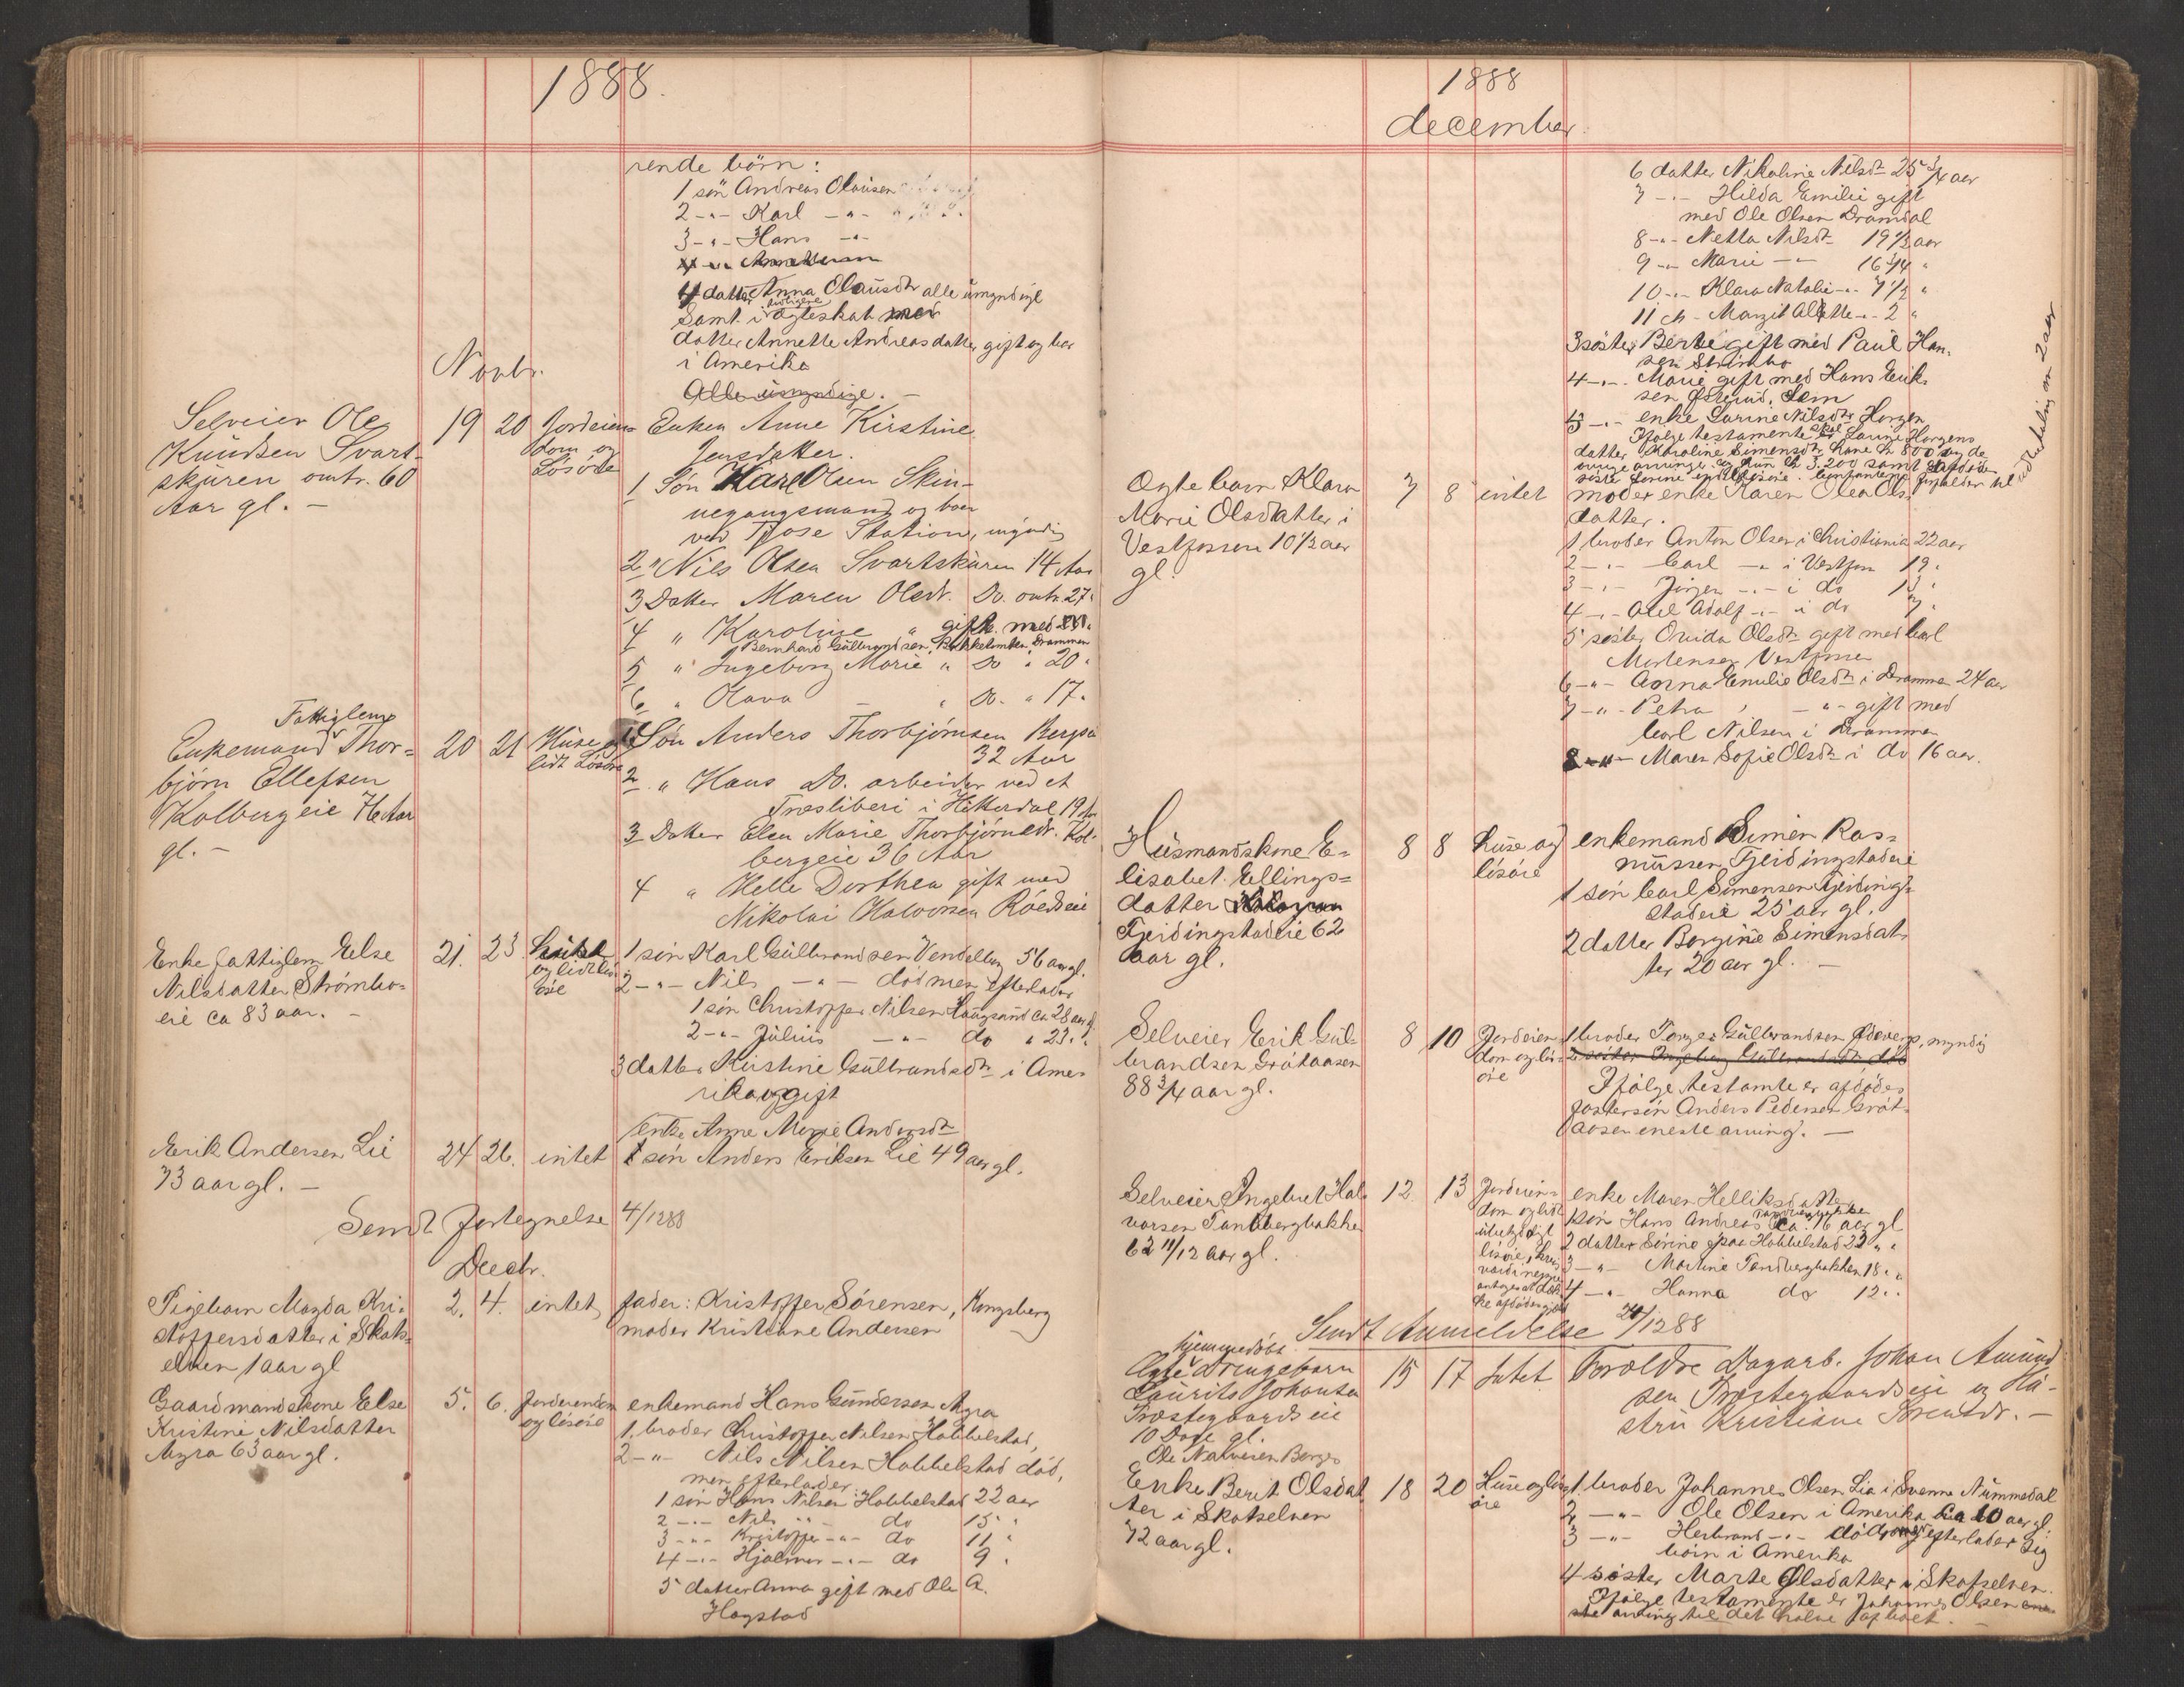 1888.
rende börn:
1 sön Andreas Olausen
2 -"- Karl -"-
3 -"- Hans -"-
4 datter Anna Olausdtr alle umyndige
Samt i tidligere ægteskab med
datter Annette Andreasdatter gift og bor
i Amerika
Alle umyndige. -
Novbr.
Selveier Ole
Knudsen Svart-
skuren omtr. 60
Aar gl. -
19 20 Jordeien-
dom og
Lösöre
Enken Anne Kirstine
Jensdatter.
1 Sön Karl Olsen Skin-
negangsmand og boer
ved Tjose Station, myndig
2 " Nils Olsen Svartskuren 14 Aar
3 Datter Maren Olsdr. Do. omtr. 27 "
4 " Karoline " gift med
Bernhard Gulbrandsen, Drammen
5 " Ingeborg Marie " Do " 20 "
6 " Olava " Do. " 17 "
Fattiglem
Enkemand Thor-
björn Ellefsen
Kolbergeie 76 Aar
gl. -
20 21 Huse og
lidt Lösöre
1 Sön Anders Thorbjörnsen Berga
32 Aar
2 " Hans Do. arbeider ved et
Træsliberi i Hitterdal 19 Aar
3 Datter Elen Marie Thorbjörnsdr. Kol-
bergeie 36 Aar
4 " Helle Dorthea gift med
Nikolai Halvorsen Röedseie
Enke fattiglem Else
Nilsdatter Strömbo-
eie ca 83 aar. -
21. 23.
og lidt lös-
öre
1 sön Karl Gulbrandsen Vendelborg 56 aar gl.
2 -"- Nils -"- död men efterlader
1 sön Christoffer Nilsen Haugsund ca 28 aar gl
2 -"- Julius -"- do " 23 " "
3 datter Kirstine Gulbrandsdtr i Ame-
rika og gift
Erik Andersen Lie
73 aar gl. -
24 26. intet
enke Anne Marie Andersdtr
1 sön Anders Eriksen Lie 49 aar gl.
Sendt Fortegnelse 4/12 88
Decbr.
Pigebarn Magda Kri-
stoffersdatter i Skots-
elven 1 aar gl
2. 4. intet
fader: Kristoffer Sörensen, Kongsberg
moder Kristiane Andersen
Gaardmandskone Else
Kristine Nilsdatter
Myra 63 aar gl.
5. 6. Jordeiendom
og lösöre
enkemand Hans Gundersen Myra
1. broder Christoffer Nilsen Hobbelstad,
2 -"- Nils Nilsen Hobbelstad död,
men efterlader
1 sön Hans Nilsen Hobbelstad 22 aar
2 -"- Nils -"- do 15 "
3 -"- Kristoffer -"- do 11 "
4 -"- Hjalmar -"- do 9 "
5 datter Anna gift med Ole A.
Hogstad
1888
december.
6 datter Nikoline Nilsdtr 25 3/4 aar
7 -"- Hilda Emilie gift
med Ole Olsen Dramdal
8 -"- Netta Nilsdtr 19 1/2 aar
9 -"- Marie -"- 16 3/4 "
10 -"- Klara Natalie -"- 7 1/2 "
11 -"- Margit Alette -"- 2 "
3 söster Berte gift med Paul Han-
sen Strömbo
4 -"- Marie gift med Hans Erik-
sen
5 -"- enke Larine Nilsdtr Horgen
Ifölge testamente skal Larine Horgens
datter Karoline Simensdtr have kr 800 og de
övrige arvinge kr 3.200 samt
moder enke Karen Olea Ols-
datter.
Ægte barn Klara
Marie Olsdatter i
Vestfossen 10 1/2 aar
gl.
7 8 intet
1 broder Anton Olsen i Christiania 22 aar
2 -"- Carl -"- i Vestfoss 19 "
3 -"- Jörgen -"- i do 13 "
4 -"- Axel Adolf -"- i do 7 "
5 söster Ovida Olsdtr gift med Carl
Mortensen Vestfossen
6 -"- Anna Emilie Olsdtr i Drammen 24 aar
7 -"- Petra -"- gift med
Carl Nilsen i Drammen
8 -"- Maren Sofie Olsdtr i do 16 aar.
Husmandskone E-
lisabet Ellings-
datter
Fjerdingstadeie 62
aar gl.
8 8 huse og
lösöre
enkemand Simen Ras-
mussen Fjerdingstadeie
1 sön Carl Simensen Fjerding-
stadeie 25 aar gl.
2 datter Borgine Simensdat-
ter 20 aar gl. -
Selveier Erik Gul-
brandsen Gråtaasen
88 3/4 aar gl.
8 10 Jordeien-
dom og lös-
öre
1 broder Torger Gulbrandsen , myndig
2 söster Ingeborg Gulbrandsdtr, död
Ifölge testamte er afdödes
fostersön Anders Pedersen Gråt-
aasen eneste arving. -
Selveier Ingebret Hal-
vorsen Tandbergbakken
62 11/12 aar gl.
12. 13 Jordeien-
dom og lidt
ubetydeligt
lösöre, hvis
værdi neppe
antages at dæk-
ke afdödes gjæld
enke Maren Helliksdatter
Tandbergbakken
1 sön Hans Andreas ca. 16 aar gl
2 datter Sörine paa Hobbelstad 22 " "
3 -"- Martine Tandbergbakken 18 " "
4 -"- Hanna do 12 " "
Sendt Anmeldelse /12 88
hjemmedöbt
Ægte Drengebarn
Laurits Johansen
Præstegaardseie
10 Dage gl.
15 17 Intet.
Forældre Dagarb. Johan Amund-
sen Præstegaardseie og Hu-
stru Kristiane Sörensdr. -
Ole Natvesen Borges
Enke Berit Olsdat-
ter i Skotselven
72 aar gl.
18 20 Huse og lös-
öre
1. broder Johannes Olsen Lia i Svenne Nummedal
2 -"- Ole Olsen i Amerika ca 60 aar gl.
3 -"- Herbrand -"- död og efterlader sig
börn i Amerika
4 söster Marte Olsdatter i Skotselven.
Ifölge testamente er Johannes Olsen ene-
ste arving til det halve af boet. -